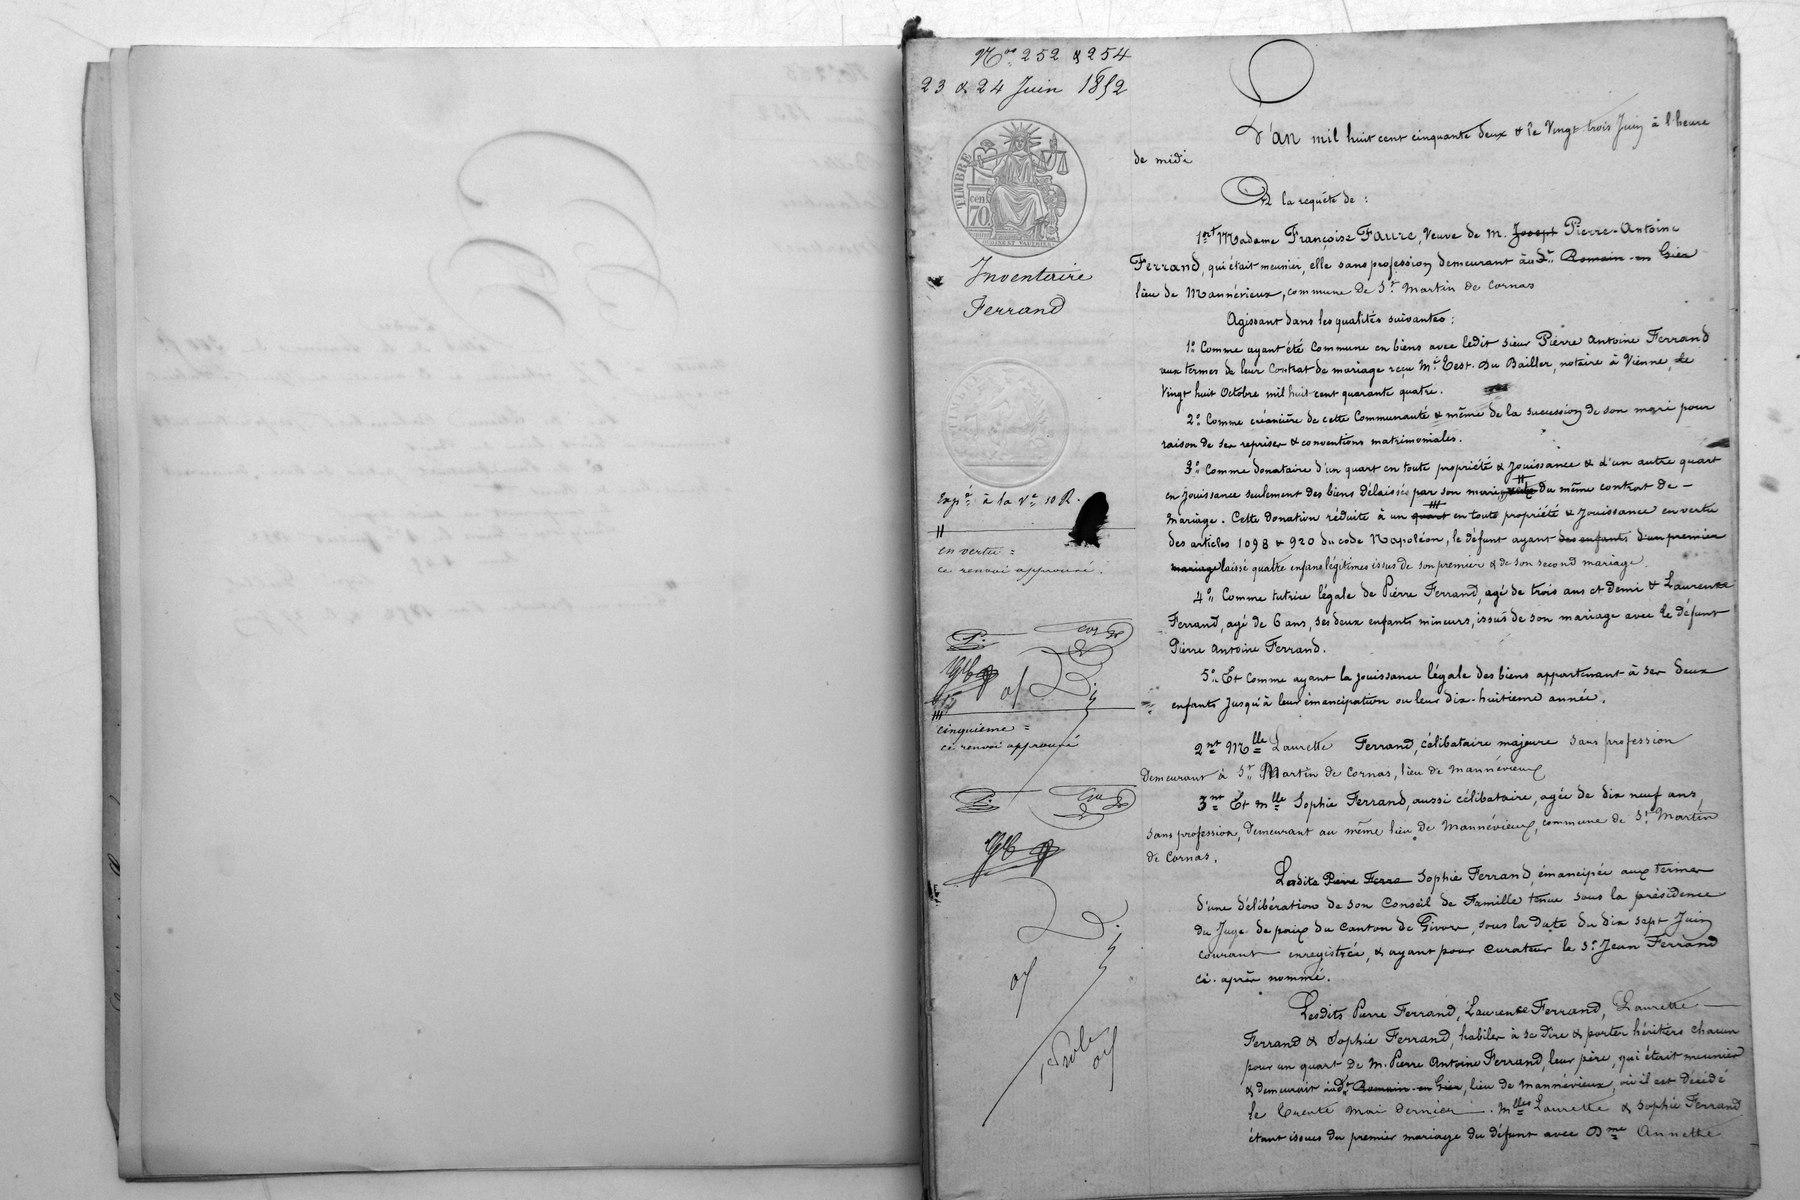 Nos 252 & 254
23 & 24 Juin 1852
TIMBRE
70 cen
Inventaire
Ferrand
Expé à la Ve 10 R.
en vertu =
ce renvoi approuvé.
cinquieme =
ce renvoi approuvé
L'an mil huit cent cinquante deux & le Vingt trois Juin à l'heure
de midi
A la requête de :
1ent Madame Françoise Faure, Veuve de M. Joseph Pierre-Antoine
Ferrand, qui était meunier, elle sans profession demeurant à St Romain-en-Gier
lieu de Mannévieux, commune de St Martin de Cornas
Agissant dans les qualités suivantes :
1° Comme ayant été Commune en biens avec ledit sieur Pierre Antoine Ferrand
aux termes de leur Contrat de mariage reçu Me Test. Du Bailler, notaire à Vienne, le
Vingt huit Octobre mil huit cent quarante quatre.
2° Comme créancière de cette Communauté & même de la succession de son mari pour
raison de ses reprises & conventions matrimoniales.
3° Comme donataire d'un quart en toute propriété & Jouissance & d'un autre quart
en Jouissance seulement des biens délaissés par son mari du même contrat de
mariage. Cette donation réduite à un quart en toute propriété & Jouissance en vertu
des articles 1098 & 920 du code Napoléon, le défunt ayant des enfants d'un premier
mariage laissé quatre enfans légitimes issus de son premier & de son second mariage.
4° Comme tutrice légale de Pierre Ferrand, agé de trois ans et Demi & Laurence
Ferrand, agé de 6 ans, ses deux enfants mineurs, issus de son mariage avec le défunt
Pierre Antoine Ferrand.
5° Et Comme ayant la jouissance légale des biens appartenant à ses deux
enfants Jusqu'à leur émancipation ou leur dix-huitieme année.
2nt Mlle Laurette Ferrand, célibataire majeure sans profession
demeurant à St Martin de Cornas, lieu de Mannévieux
3nt Et Mlle Sophie Ferrand, aussi célibataire, agée de dix neuf ans,
sans profession, demeurant au même lieu de Mannévieux, commune de St Martin
de Cornas.
Ladite Pierre Ferra Sophie Ferrand, émancipée aux termes
d'une délibération de son Conseil de Famille tenue sous la présidence
du Juge de paix du Canton de Givors, sous la date du dix sept Juin
courant enregistrée, & ayant pour Curateur le Sr Jean Ferrand
ci-après nommé.
Lesdits Pierre Ferrand, Laurence Ferrand, Laurette
Ferrand & Sophie Ferrand, habiles à se dire & porter héritiers chacun
pour un quart de M. Pierre Antoine Ferrand, leur père, qui était meunier
& demeurait à St Romain-en-Gier, lieu de Mannévieux, où il est décédé
le trente mai dernier. Mlles Laurette & Sophie Ferrand
étant issues du premier mariage du défunt avec Dme Annette